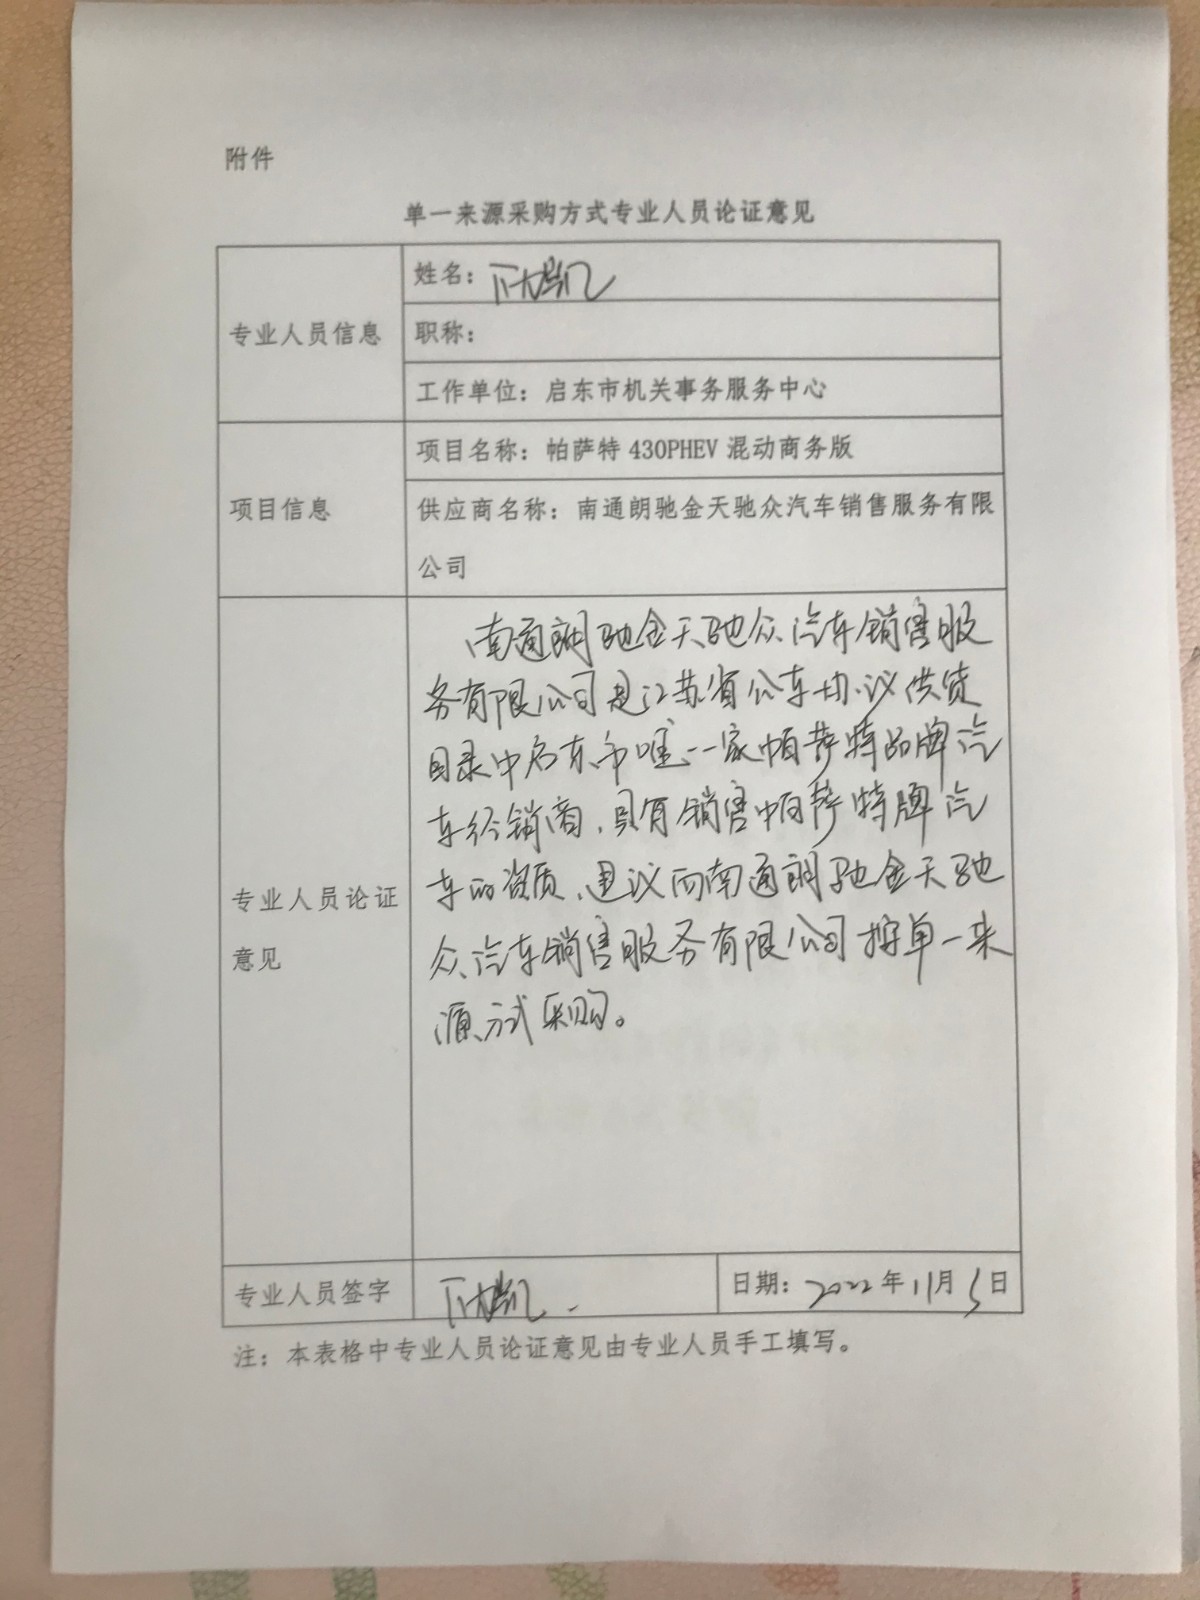 附件
单一来源采购方式专业人员论证意见
专业人员信息
姓名：
职称：
工作单位：启东市机关事务服务中心
项目信息
项目名称：帕萨特 430PHEV 混动商务版
供应商名称：南通朗驰金天驰众汽车销售服务有限
公司
专业人员论证
意见
南通朗驰金天驰众汽车销售服
务有限公司是江苏省公车协议供货
目录中启东市唯一一家帕萨特品牌汽
车经销商、具有销售帕萨特牌汽
车的资质、建议向南通朗驰金天驰
众汽车销售服务有限公司按单一来
源方式采购。
专业人员签字
日期：2022年11月5日
注：本表格中专业人员论证意见由专业人员手工填写。